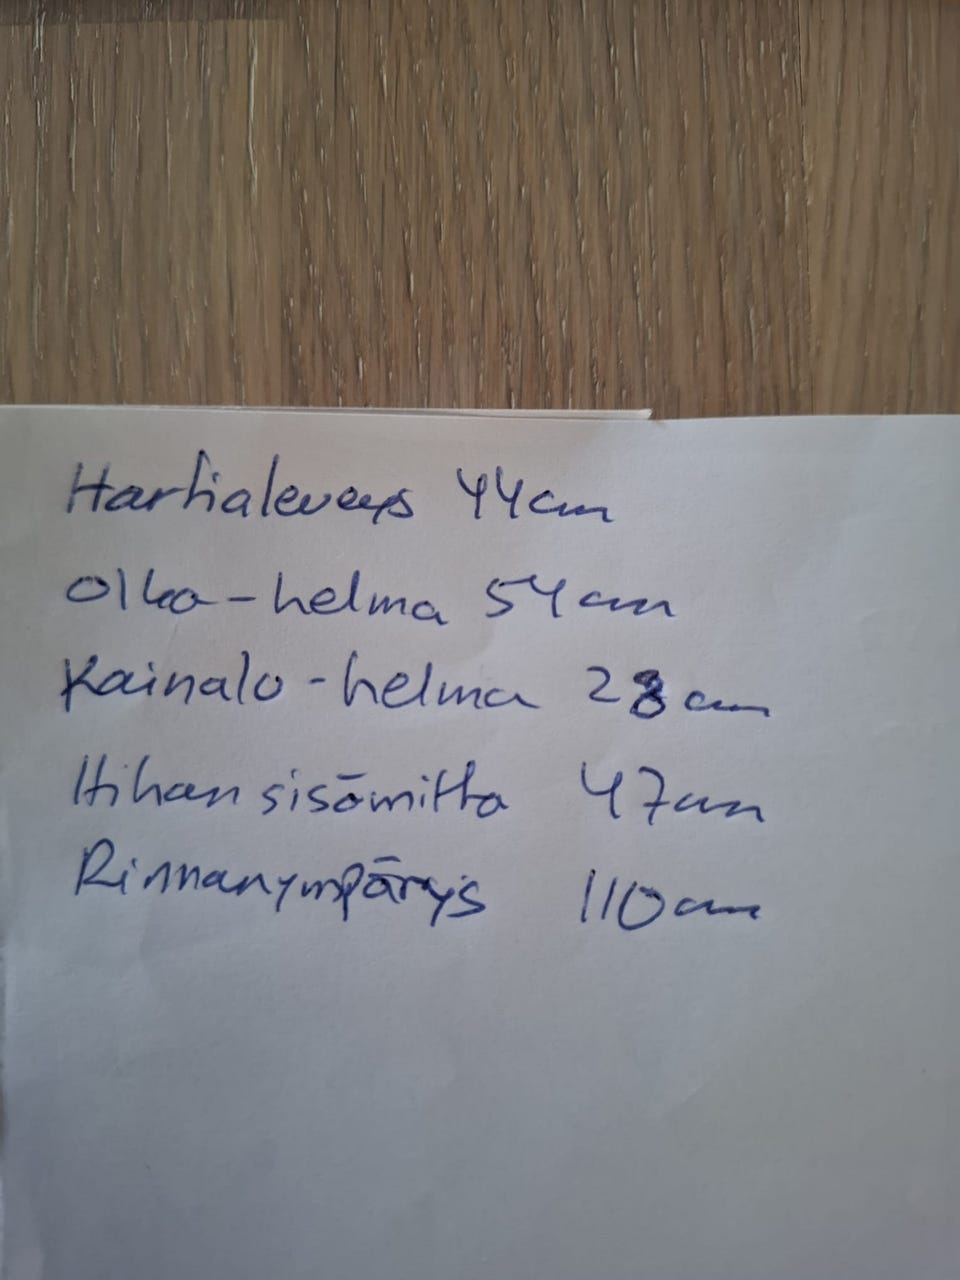 Hartialeveys 44cm
Olka-helma 54cm
Kainalo-helma 28cm
Hihan sisämitta 47cm
Rinnanympärys 110cm